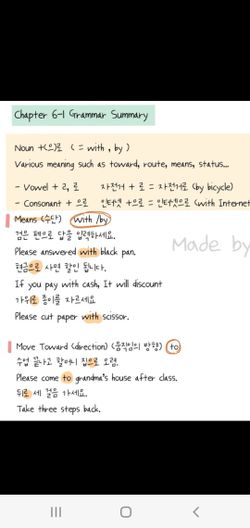 Chapter 6-1 Grammar Summary
Noun +(으)로 ( = with , by )
Various meaning such as toward, route, means, status...
- Vowel + ㄹ, 로 자전거 + 로 = 자전거로 (by bicycle)
- Consonant + 으로 인터넷 +으로 = 인터넷으로 (with Internet
Means (수단) (with /by)
검은 펜으로 답을 입력하세요.
Please answered with black pan.
현금으로 사면 할인 됩니다.
If you pay with cash, It will discount
가위로 종이를 자르세요
Please cut paper with scissor.
Made by
Move Toward (direction) (움직임의 방향) (to)
수업 끝나고 할머니 집으로 오렴.
Please come to grandma's house after class.
뒤로 세 걸음 가세요.
Take three steps back.